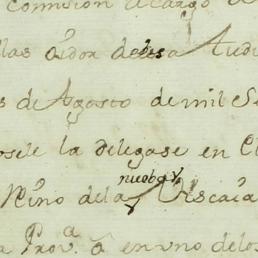 comision el cargo de
llas oidor de esa Audi
s de Agosto de mil Se
osele la delegase en el
nueba V
Reino de la Viscaia
a Prov.a ô en uno de los